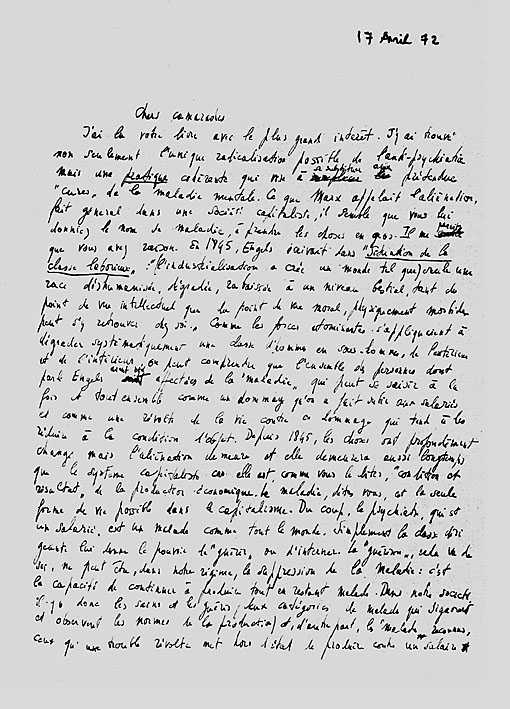 17 Avril 72
Chers camarades
J'ai lu votre livre avec le plus grand intérêt. J'y ai trouvé
non seulement l'unique radicalisation possible de l'anti-psychiatrie
mais une pratique cohérente qui vise à se substituer aux prétendues
"cures" de la maladie mentale. Ce que Marx appelait l'aliénation,
fait général dans une société capitaliste, il semble que vous lui
donniez le nom de maladie, à prendre les choses en gros. Il me
que vous avez raison. En 1845, Engels écrivait dans "Situation de la
classe laborieuse": "l'industrialisation a créé un monde tel que seule une
race déshumanisée, dégradée, rabaissée à un niveau bestial, tant du
point de vue intellectuel que du point de vue moral, physiquement morbide
peut s'y retrouver chez soi". Comme les forces atomisantes s'appliquent à
dégrader systématiquement une classe d'hommes en sous-hommes, de l'extérieur
et de l'intérieur, on peut comprendre que l'ensemble des personnes dont
parle Engels aient été affectées de la "maladie" qui peut se saisir à la
fois et tout ensemble comme un dommage qu'on a fait subir aux salariés
et comme une révolte de la vie contre ce dommage qui tend à les
réduire à la condition d'objet. Depuis 1845, les choses ont profondément
changé mais l'aliénation demeure et elle demeurera aussi longtemps
que le système capitaliste car elle est, comme vous le dites, "condition et
résultat" de la production économique. La maladie, dites-vous, est la seule
forme de vie possible dans le capitalisme. Du coup, le psychiatre, qui est
un salarié, est un malade comme tout le monde. Simplement la classe diri
geante lui donne le pouvoir de "guérir" ou d'interner. La "guérison", cela va de
soi, ne peut être, dans notre régime, la suppression de la maladie: c'est
la capacité de continuer à produire tout en restant malade. Dans notre société
il-y-a donc les sains et les guéris, deux catégories de malades qui s'ignorent
et observent les normes de la production, et, d'autre part, les "malades" reconnus,
ceux qu'une trouble révolte met hors d'état de produire contre un salaire